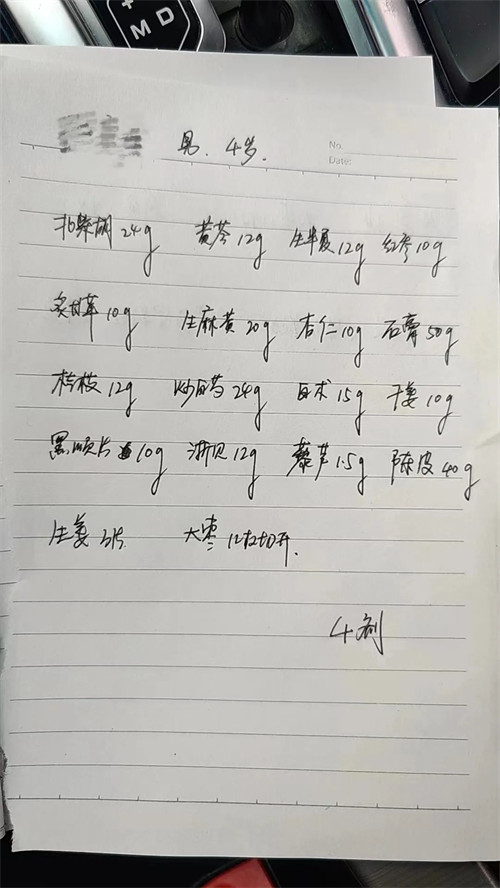 M D
男. 4岁.
No.
Date:
北柴胡 24g 黄芩 12g 生半夏 12g 红参 10g
炙甘草 10g 生麻黄 20g 杏仁 10g 石膏 50g
桂枝 12g 炒白芍 24g 白术 15g 干姜 10g
黑顺片 10g 浙贝 12g 藜芦 1.5g 陈皮 40g
生姜 3片 大枣 12枚切开.
4剂